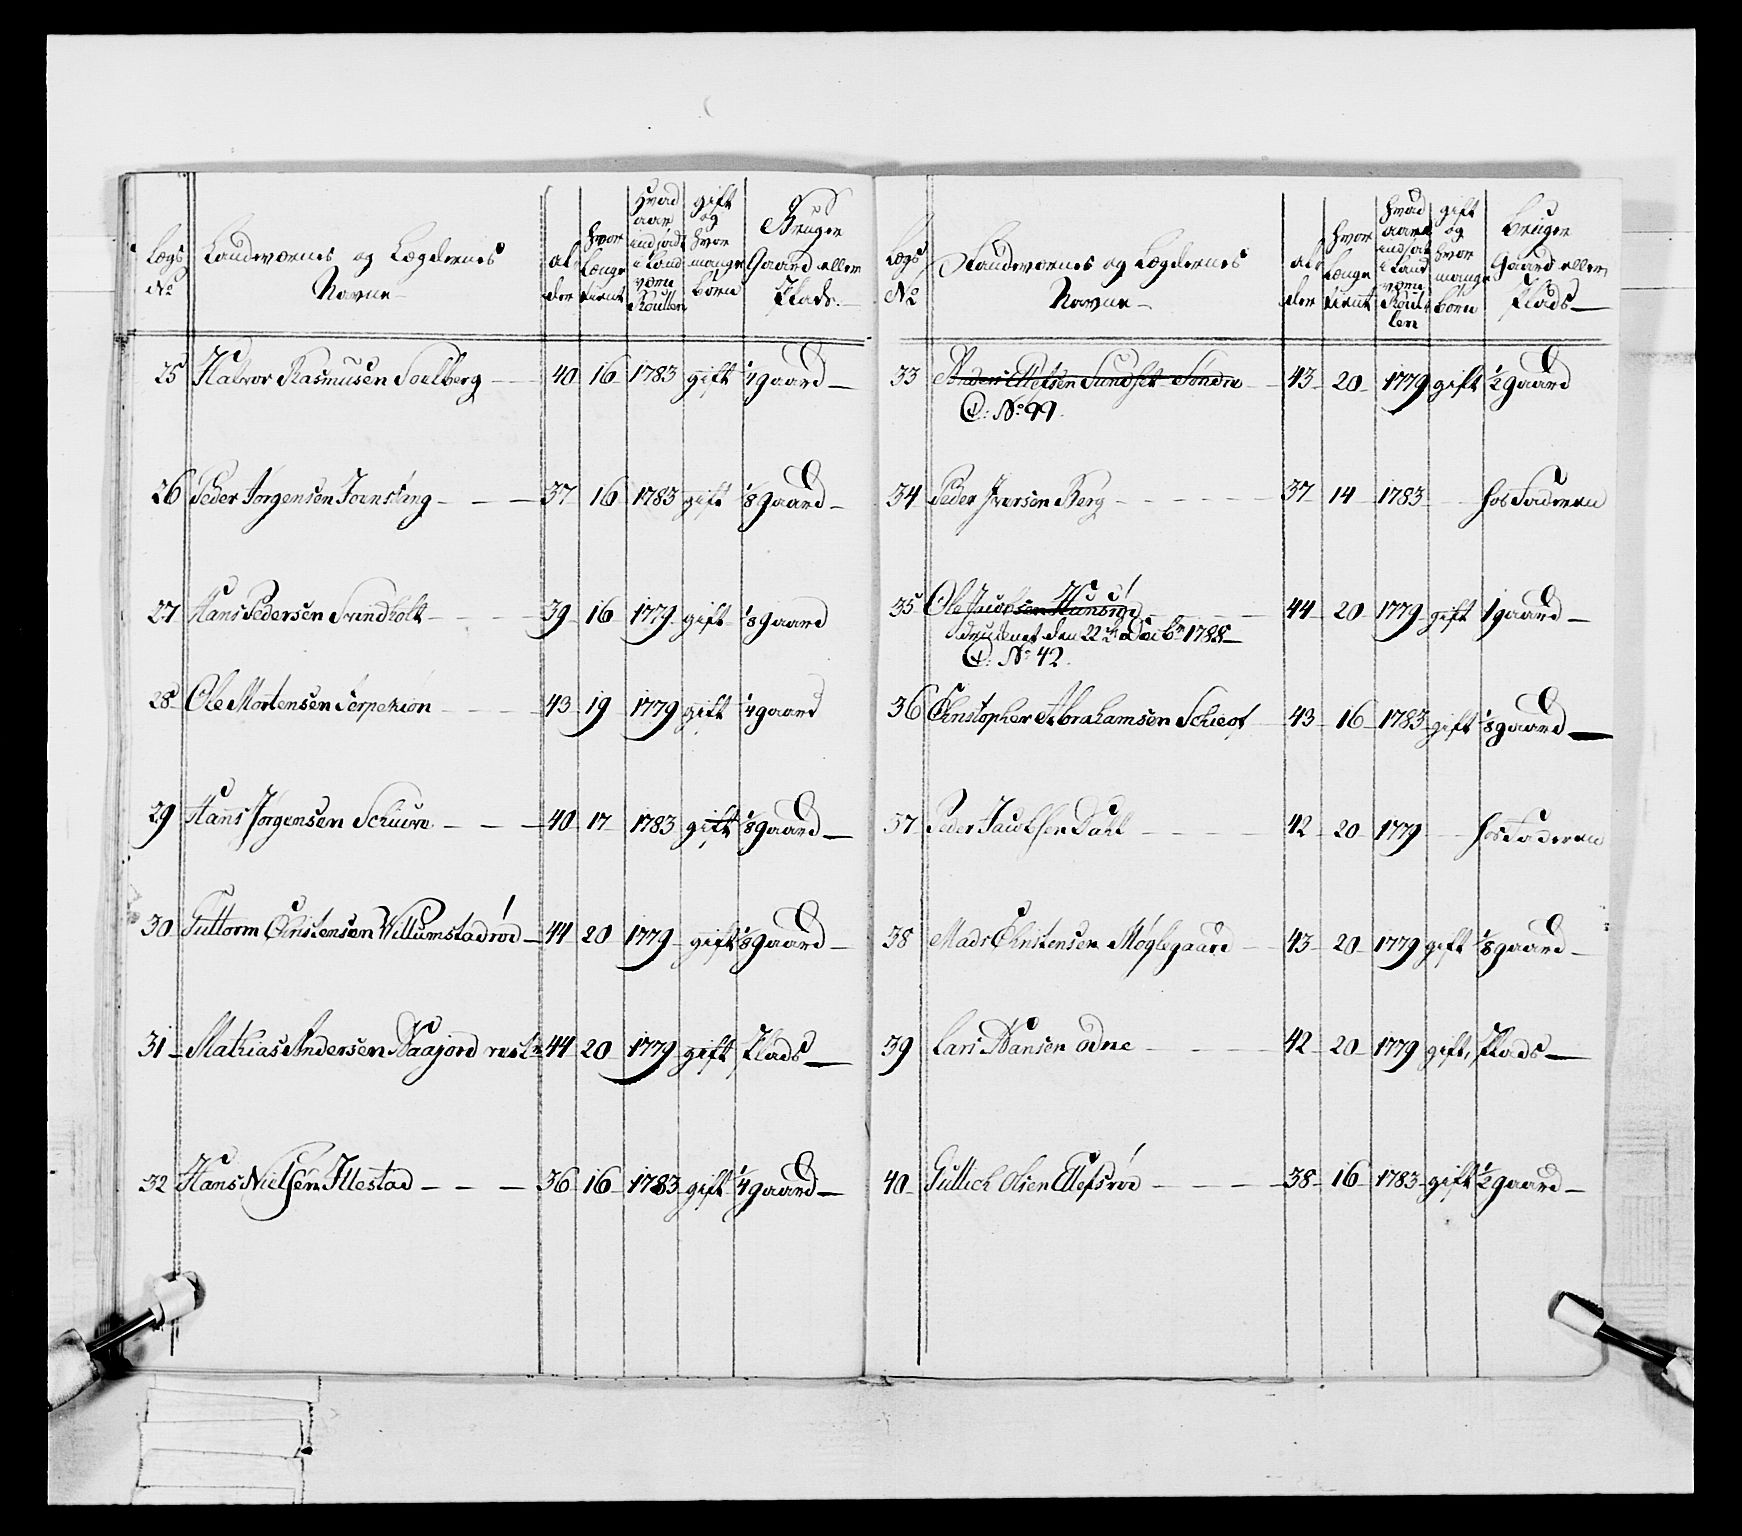 Lægs No
Landværnes og Lægdernes Navne
alder
hvor længe tient
Hvad aar indsadt i Land værn Roullen
gift og hvor mange børn
Bruger Gaard eller Plads
25 Halvor Rasmusen Soelberg 40 16 1783 gift 1/4 gaard
26 Peder Jørgensen 37 16 1783 gift 1/8 gaard
27 Hans Pedersen Svindholt 39 16 1779 gift 1/8 gaard
28 Ole Mortensen 43 19 1779 gift 1/4 gaard
29 Hans Jørgensen Schiure 40 17 1783 gift 1/8 gaard
30 Guttorm Christensen Willumstadrød 44 20 1779 gift 1/8 gaard
31 Mathias Andersen 44 20 1779 gift Plads
32 Hans Nielsen Illestad 36 16 1783 gift 1/4 gaard
Lægs No
Landværnes og Lægdernes Navne
alder
hvor længe tient
hvad aar indsat i Land værn Roullen
gift og hvor mange børn
bruger Gaard eller Plads
33 Anders Ellefsen Sundset Søndre 43 20 1779 gift 1/2 gaard
No 99
34 Peder Iversen Berg 37 14 1783 hos Faderen
35 Ole Jacobsen 44 20 1779 gift 1 gaard
den 22de Decbr 1788
No 42
36 Christopher Abrahamsen Schieof 43 16 1783 gift 1/8 gaard
37 Peder Jacobsen Dahl 42 20 1779 hos Faderen
38 Mads Christensen Møglegaard 43 20 1779 gift 1/8 gaard
39 Lars Hansen Odne 42 20 1779 gift Plads
40 Gullich Olsen Ellefsrød 38 16 1783 gift 1/2 gaard